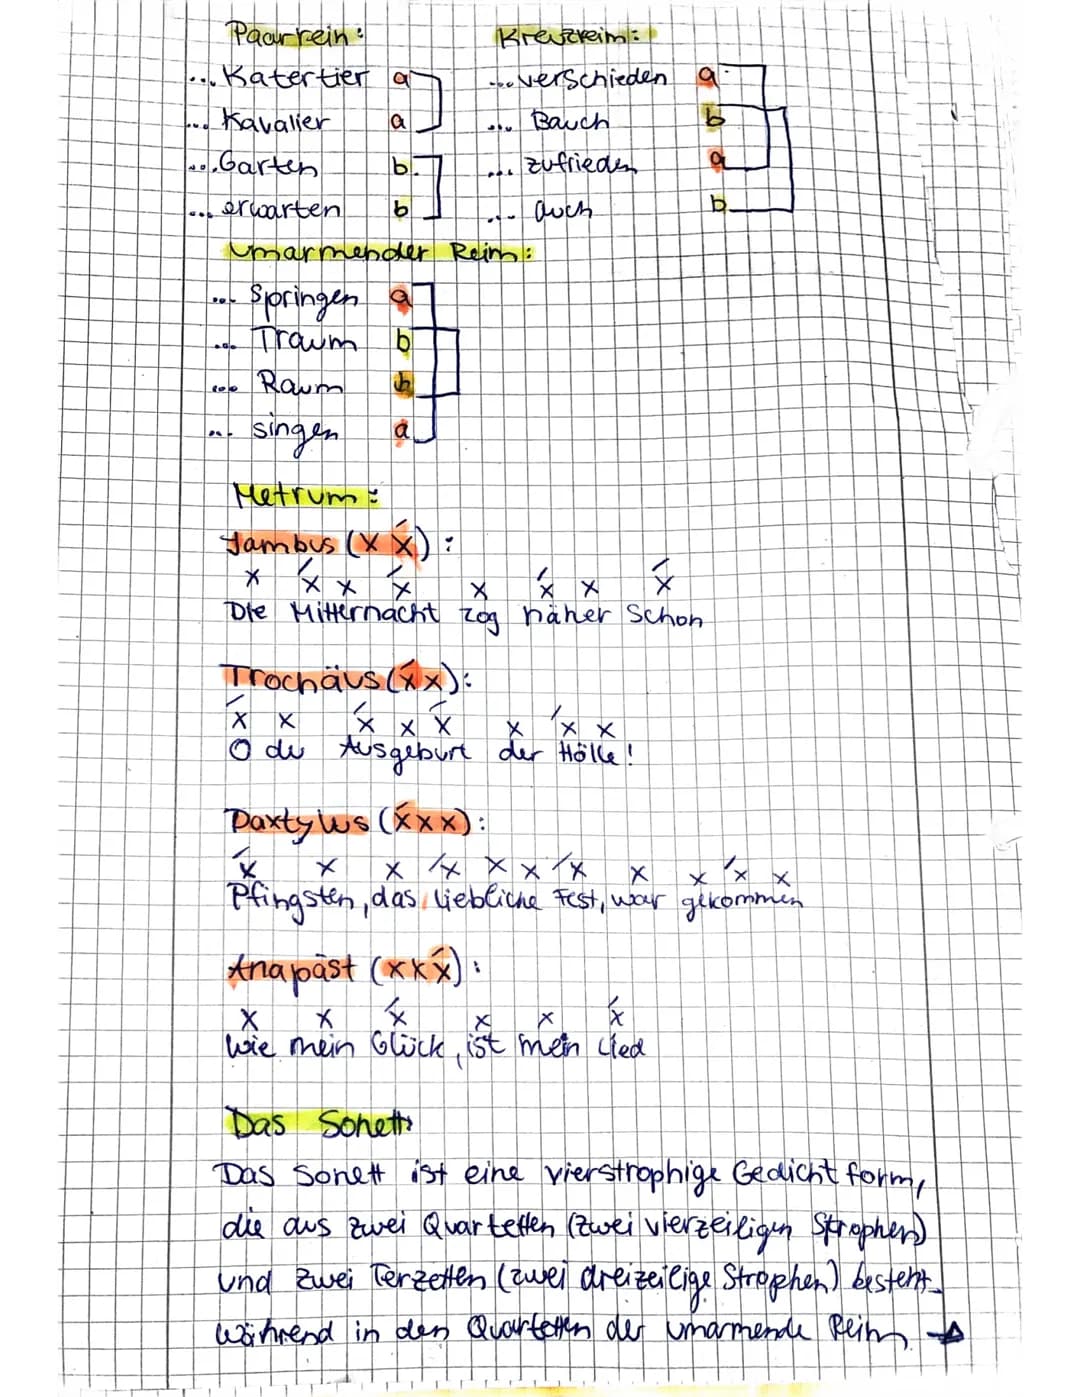 Paarrein: Kreuzreim:
... Katertier a ... verschieden a
... Kavalier a ... Bauch b
... Garten b ... zufrieden a
... erwarten b ... auch b
Umarmender Reim:
... Springen a
... Traum b
... Raum b
... singen a
Metrum:
Jambus (x x́):
x x́ x x́ x x́ x x́
Die Mitternacht zog näher schon
Trochäus (x́ x):
x́ x x́ x x́ x x́ x
O du Ausgeburt der Hölle!
Daxtylus (x́ x x):
x́ x x x́ x x x́ x x x́ x
Pfingsten, das liebliche Fest, war gekommen
Anapäst (x x x́):
x x x́ x x x́
Wie mein Glück, ist mein Lied
Das Sonett:
Das Sonett ist eine vierstrophige Gedichtform,
die aus zwei Quartetten (zwei vierzeiligen Strophen)
und zwei Terzetten (zwei dreizeilige Strophen) besteht.
Während in den Quartetten der umarmende Reim →